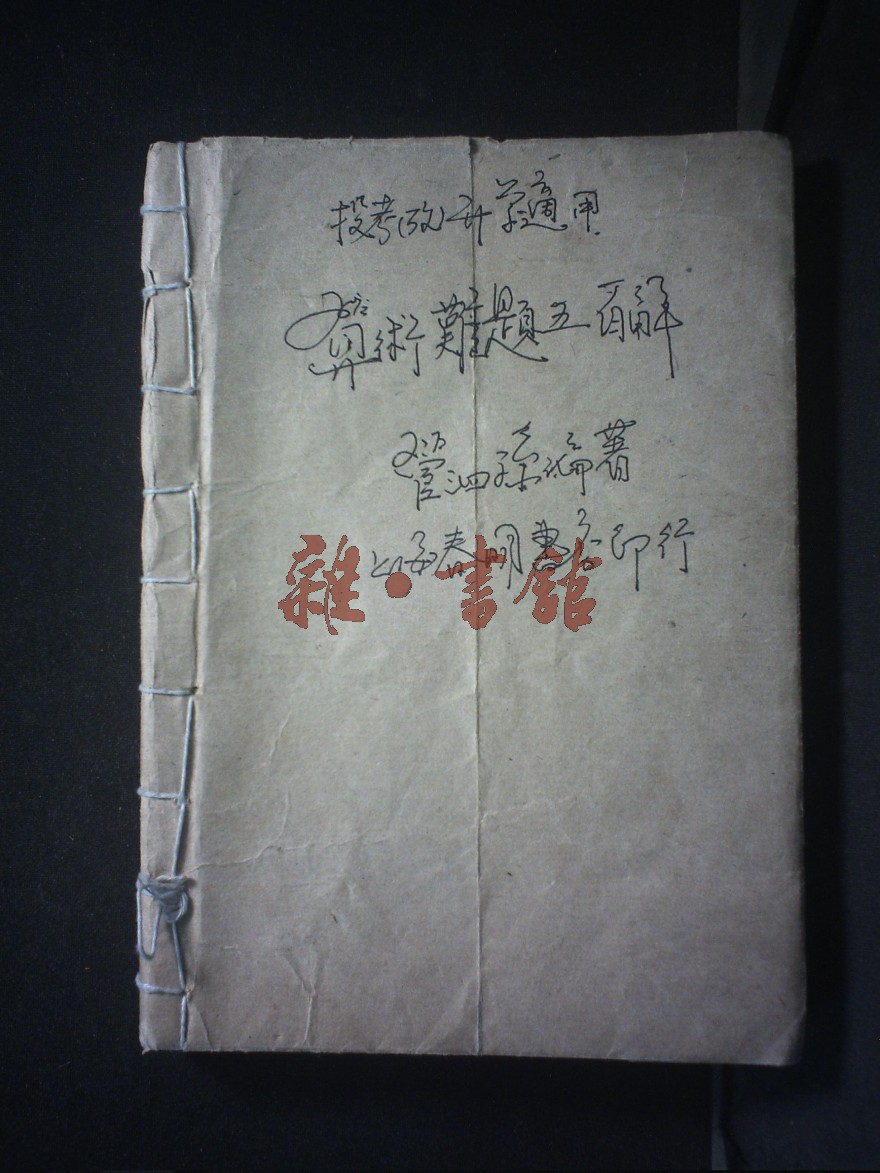 投考(攷)升學適用
算術難題五百解
管泗孫編著
上海春明書店印行
雜·書館